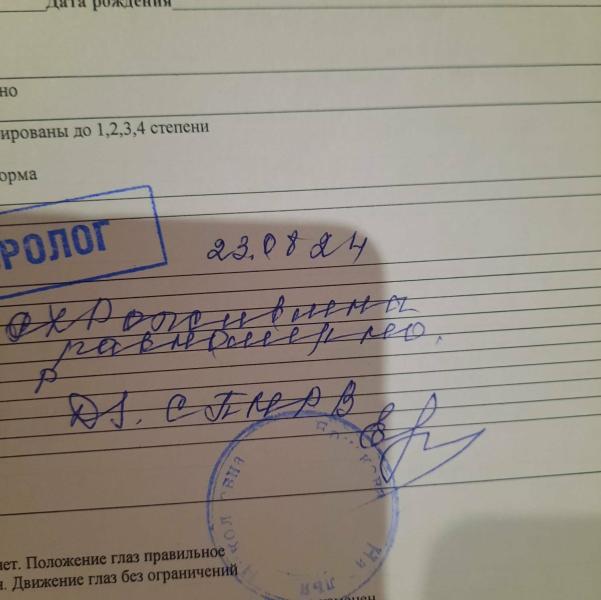 Дата рождения
но
ированы до 1,2,3,4 степени
орма
РОЛОГ
23.08 24
СХР оживлены
равномерно.
Р
DS. СПНРВ
нет. Положение глаз правильное
н. Движение глаз без ограничений